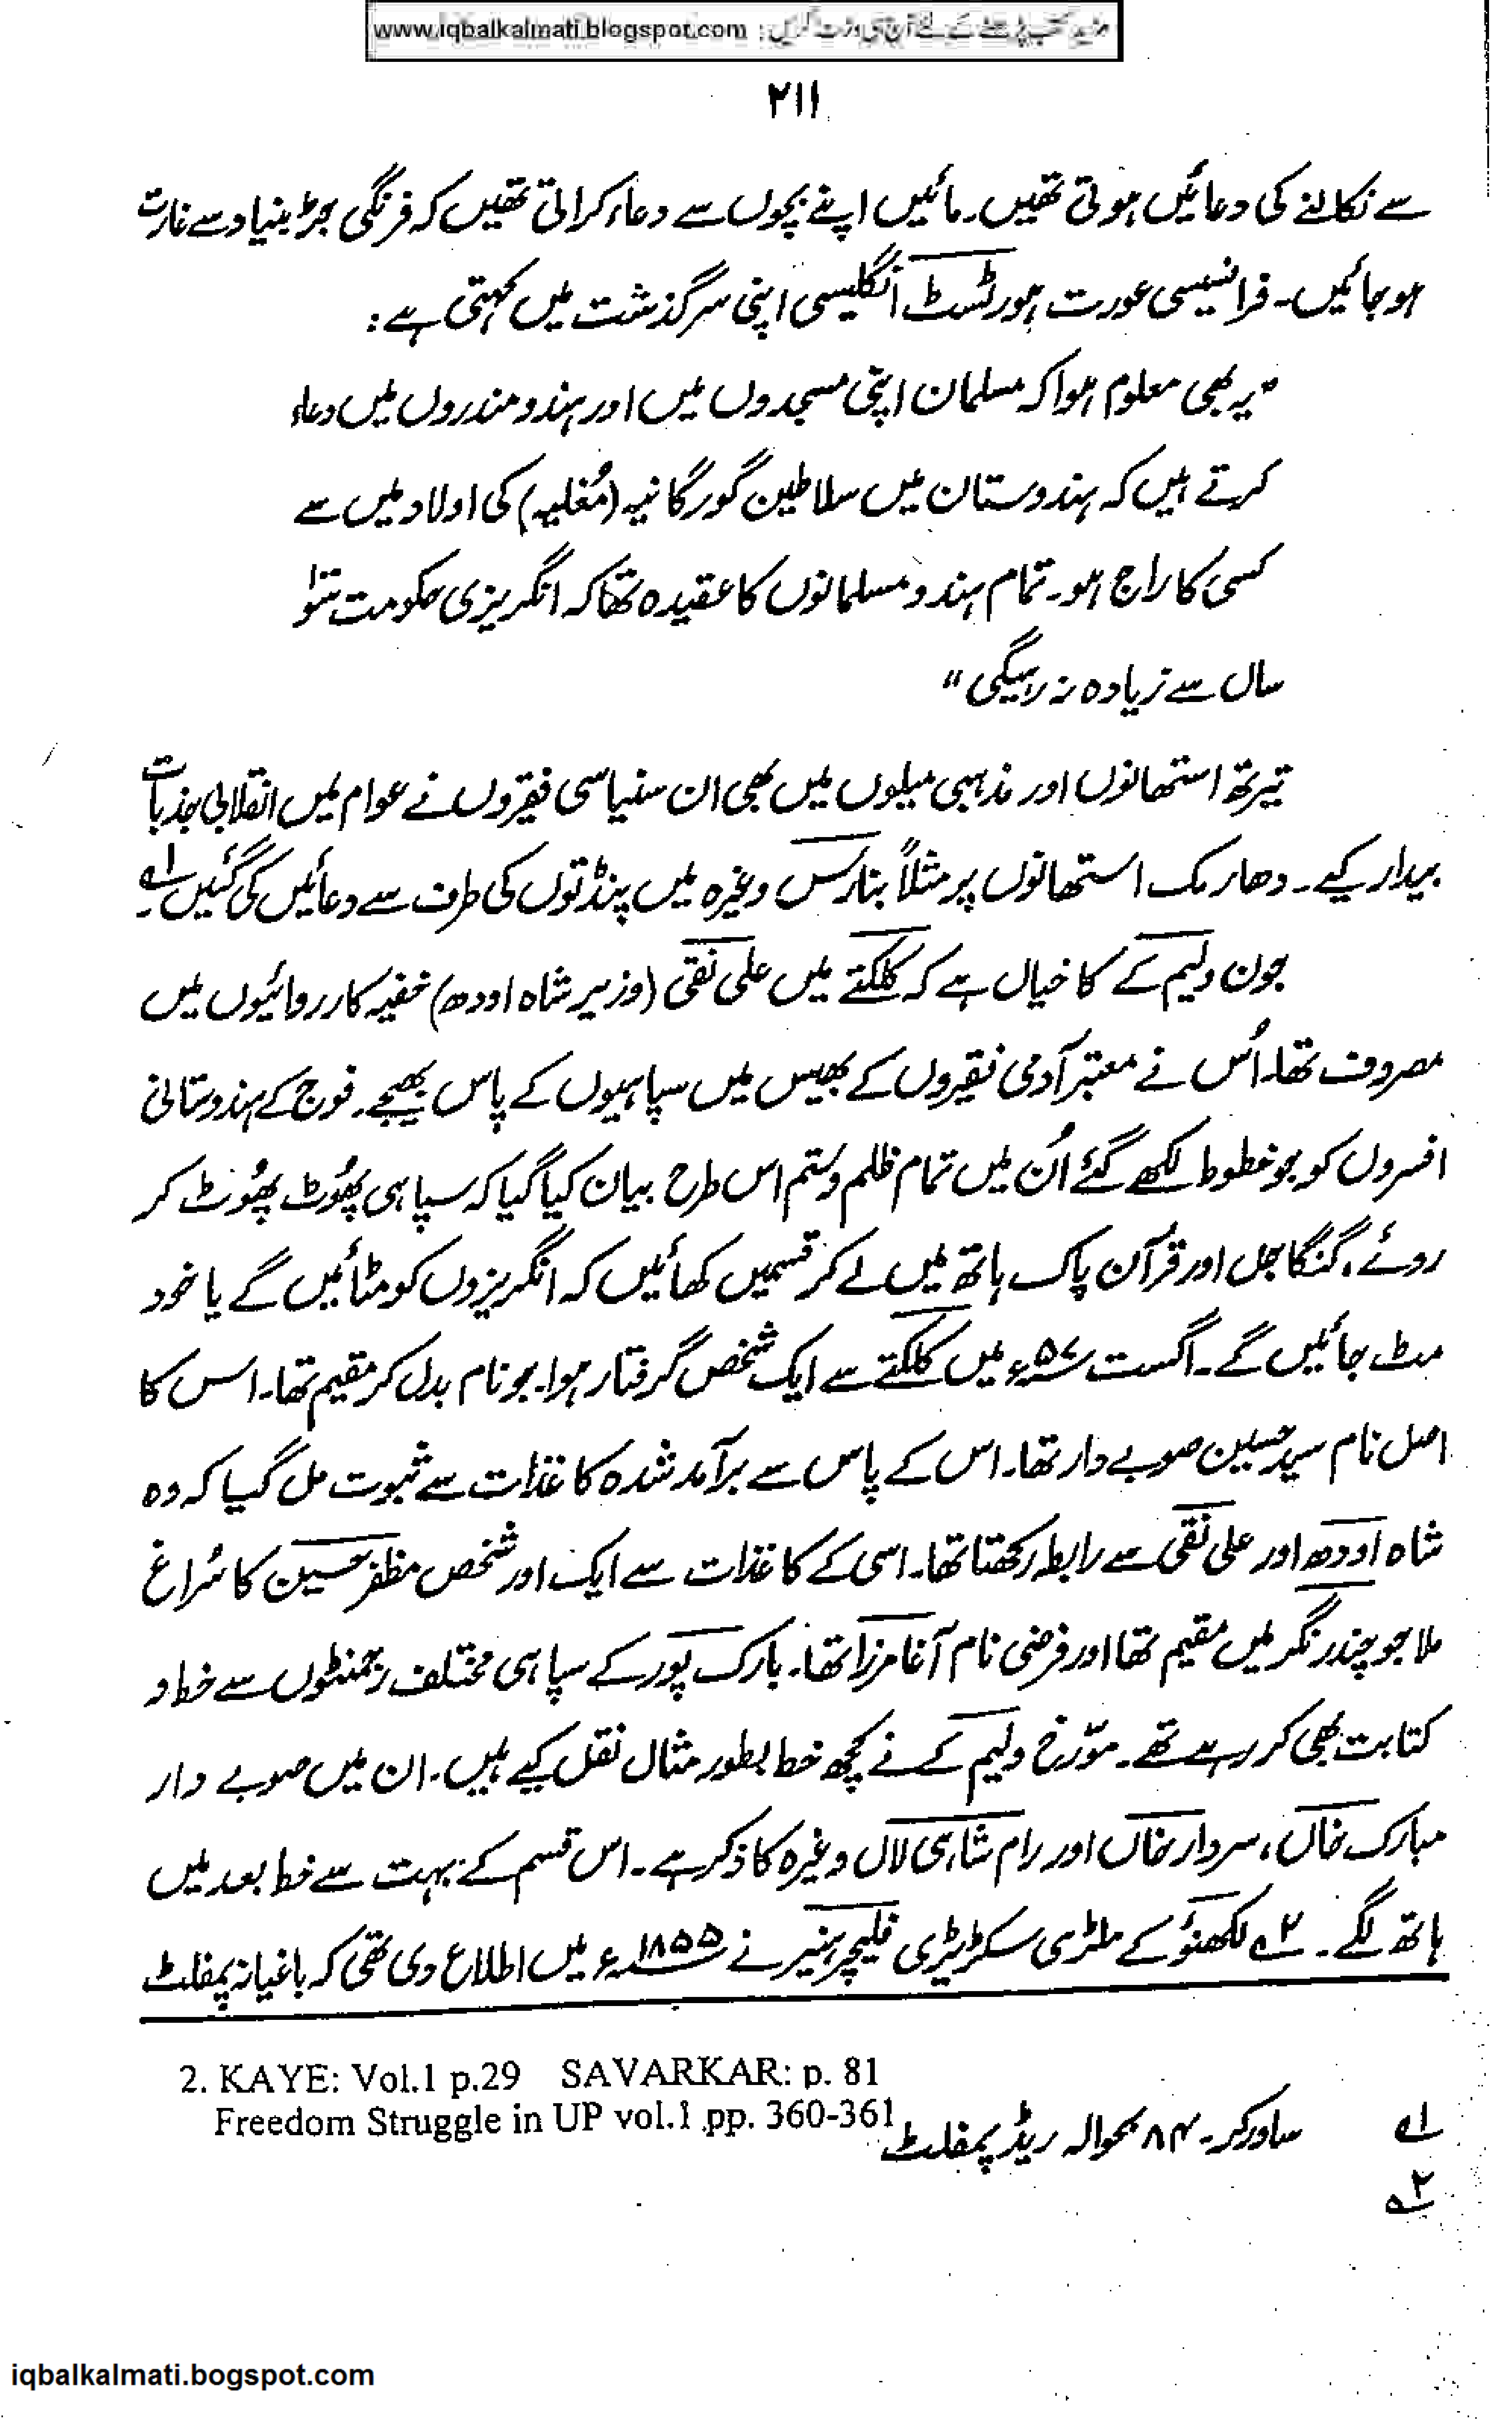 www.iqbalkalmati.blogspot.com : مزید کتب پڑھنے کے لئے آج ہی وزٹ کریں
۲۱۱
سے نکالنے کی دعائیں ہوتی تھیں۔ مائیں اپنے بچوں سے دعاء کراتی تھیں کہ فرنگی جڑ بنیاد سے غارت
ہو جائیں۔ فرانسیسی عورت ہورٹسٹ انگلیسی اپنی سرگذشت میں کہتی ہے:
"یہ بھی معلوم ہوا کہ مسلمان اپنی مسجدوں میں اور ہندو مندروں میں دعاء
کرتے ہیں کہ ہندوستان میں سلاطین گورگانیہ (مُغلیہ) کی اولاد میں سے
کسی کا راج ہو۔ تمام ہندو مسلمانوں کا عقیدہ تھا کہ انگریزی حکومت سَو
سال سے زیادہ نہ رہیگی"
تیرتھ استھانوں اور مذہبی میلوں میں بھی ان سنیاسی فقیروں نے عوام میں انقلابی جذبات
بیدار کیے۔ دھارمک استھانوں پر مثلاً بنارس وغیرہ میں پنڈتوں کی طرف سے دعائیں کی گئیں۔ ۱؎
جون ولیم کے کا خیال ہے کہ کلکتے میں علی نقی (وزیر شاہ اودھ) خفیہ کارروائیوں میں
مصروف تھا۔ اُس نے معتبر آدمی فقیروں کے بھیس میں سپاہیوں کے پاس بھیجے۔ فوج کے ہندوستانی
افسروں کو جو خطوط لکھے گئے اُن میں تمام ظلم و ستم اس طرح بیان کیا گیا کہ سپاہی پھُوٹ پھُوٹ کر
روئے، گنگا جل اور قرآن پاک ہاتھ میں لے کر قسمیں کھائیں کہ انگریزوں کو مٹائیں گے یا خود
مٹ جائیں گے۔ اگست ۵۷ء میں کلکتے سے ایک شخص گرفتار ہوا۔ جو نام بدل کر مقیم تھا۔ اس کا
اصل نام سید حسین صوبے دار تھا۔ اس کے پاس سے برآمد شدہ کاغذات سے ثبوت مل گیا کہ وہ
شاہ اودھ اور علی نقی سے رابطہ رکھتا تھا۔ اسی کے کاغذات سے ایک اور شخص مظفر حسین کا سُراغ
ملا جو چندر نگر میں مقیم تھا اور فرضی نام آغا مرزا تھا۔ بارک پور کے سپاہی مختلف رجمنٹوں سے خط و
کتابت بھی کر رہے تھے۔ مؤرخ ولیم کے نے کچھ خط بطور مثال نقل کیے ہیں۔ ان میں صوبے دار
مبارک خاں، سردار خاں اور رام شاہی لال وغیرہ کا ذکر ہے۔ اس قسم کے بہت سے خط بعد میں
ہاتھ لگے۔ ۲؎ لکھنؤ کے ملٹری سکریٹری فلیچر ہیئر نے ۱۸۵۵ء میں اطلاع دی تھی کہ باغیانہ پمفلٹ
2. KAYE: Vol.1 p.29 SAVARKAR: p. 81
Freedom Struggle in UP vol.1 pp. 360-361
۱؎ ساورکر۔ ۸۴ بحوالہ ریڈ پمفلٹ
۲؎
iqbalkalmati.bogspot.com